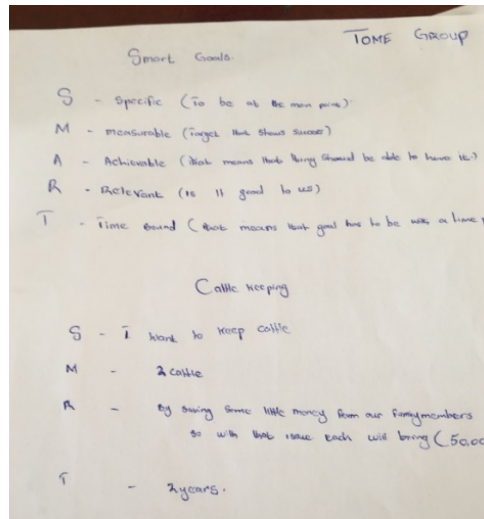 TOME GROUP
Smart Goals.
S - Specific (To be at the main point)
M - measurable (Target that shows success)
A - Achievable (that means that thing should be able to have it.)
R - Relevant (is it good to us)
T - Time Bound (that means that goal has to be with a time
Cattle Keeping
S - I want to keep cattle
M - 2 cattle
A - By saving some little money from our family members
so with that issue each will bring (50.00
T - 2 years.